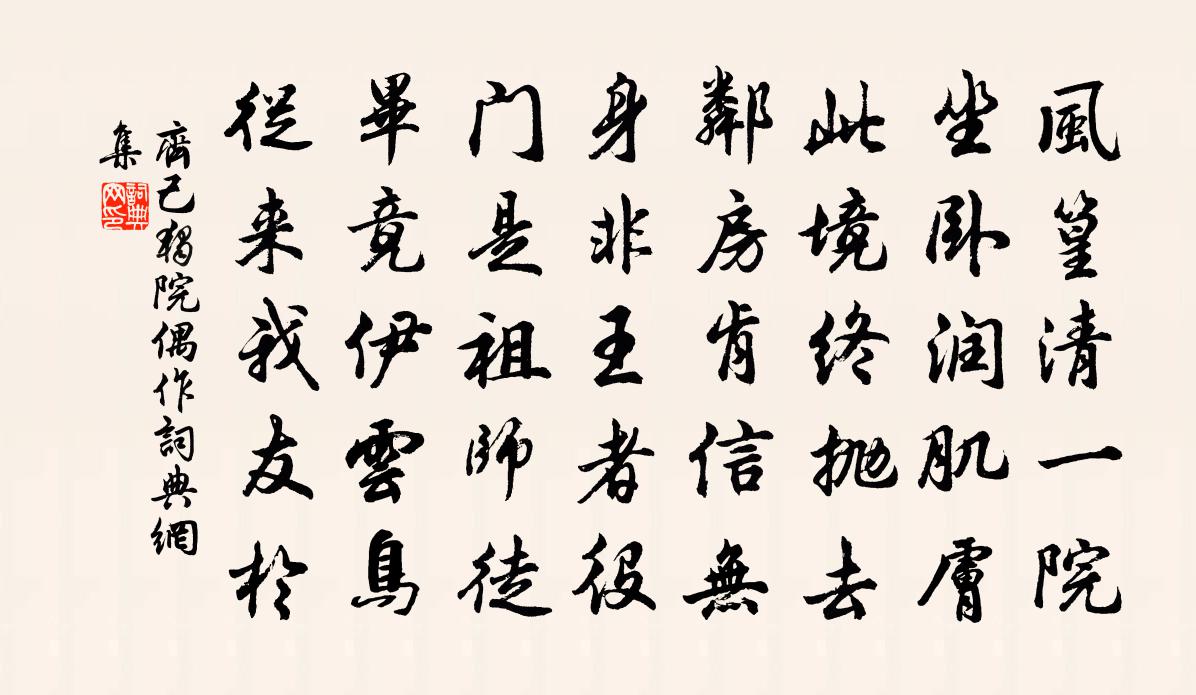 風篁清一院
坐卧润肌膚
此境終抛去
鄰房肯信無
身非王者役
门是祖師徒
畢竟伊雲鳥
從来我友於
齊己獨院偶作詞典網
集
詞典网印